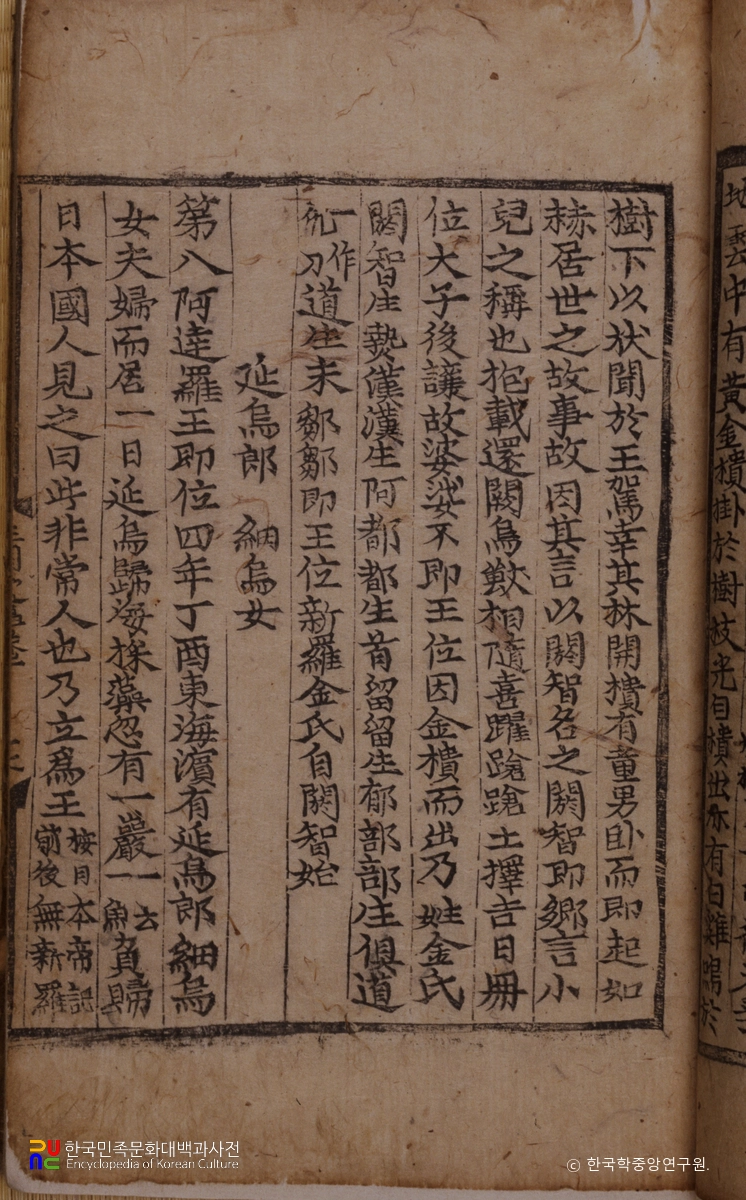 地雲中有黃金樻掛於樹枝光自樻出亦有白雞鳴於
樹下以狀聞於王駕幸其林開樻有童男卧而即起如
赫居世之故事故因其言以閼智名之閼智即鄕言小
兒之稱也抱載還闕鳥獸相隨喜躍蹌蹌土擇吉日冊
位大子後讓故婆娑不即王位因金樻而出乃姓金氏
閼智生熱漢漢生阿都都生首留留生郁部部生俱道
一作仇刀道生未鄒鄒即王位新羅金氏自閼智始
延烏郎 細烏女
第八阿達羅王即位四年丁酉東海濱有延烏郎細烏
女夫婦而居一日延烏歸海採藻忽有一巖一云一魚負歸
日本國人見之曰此非常人也乃立爲王按日本帝記前後無新羅
한국민족문화대백과사전
Encyclopedia of Korean Culture
© 한국학중앙연구원.